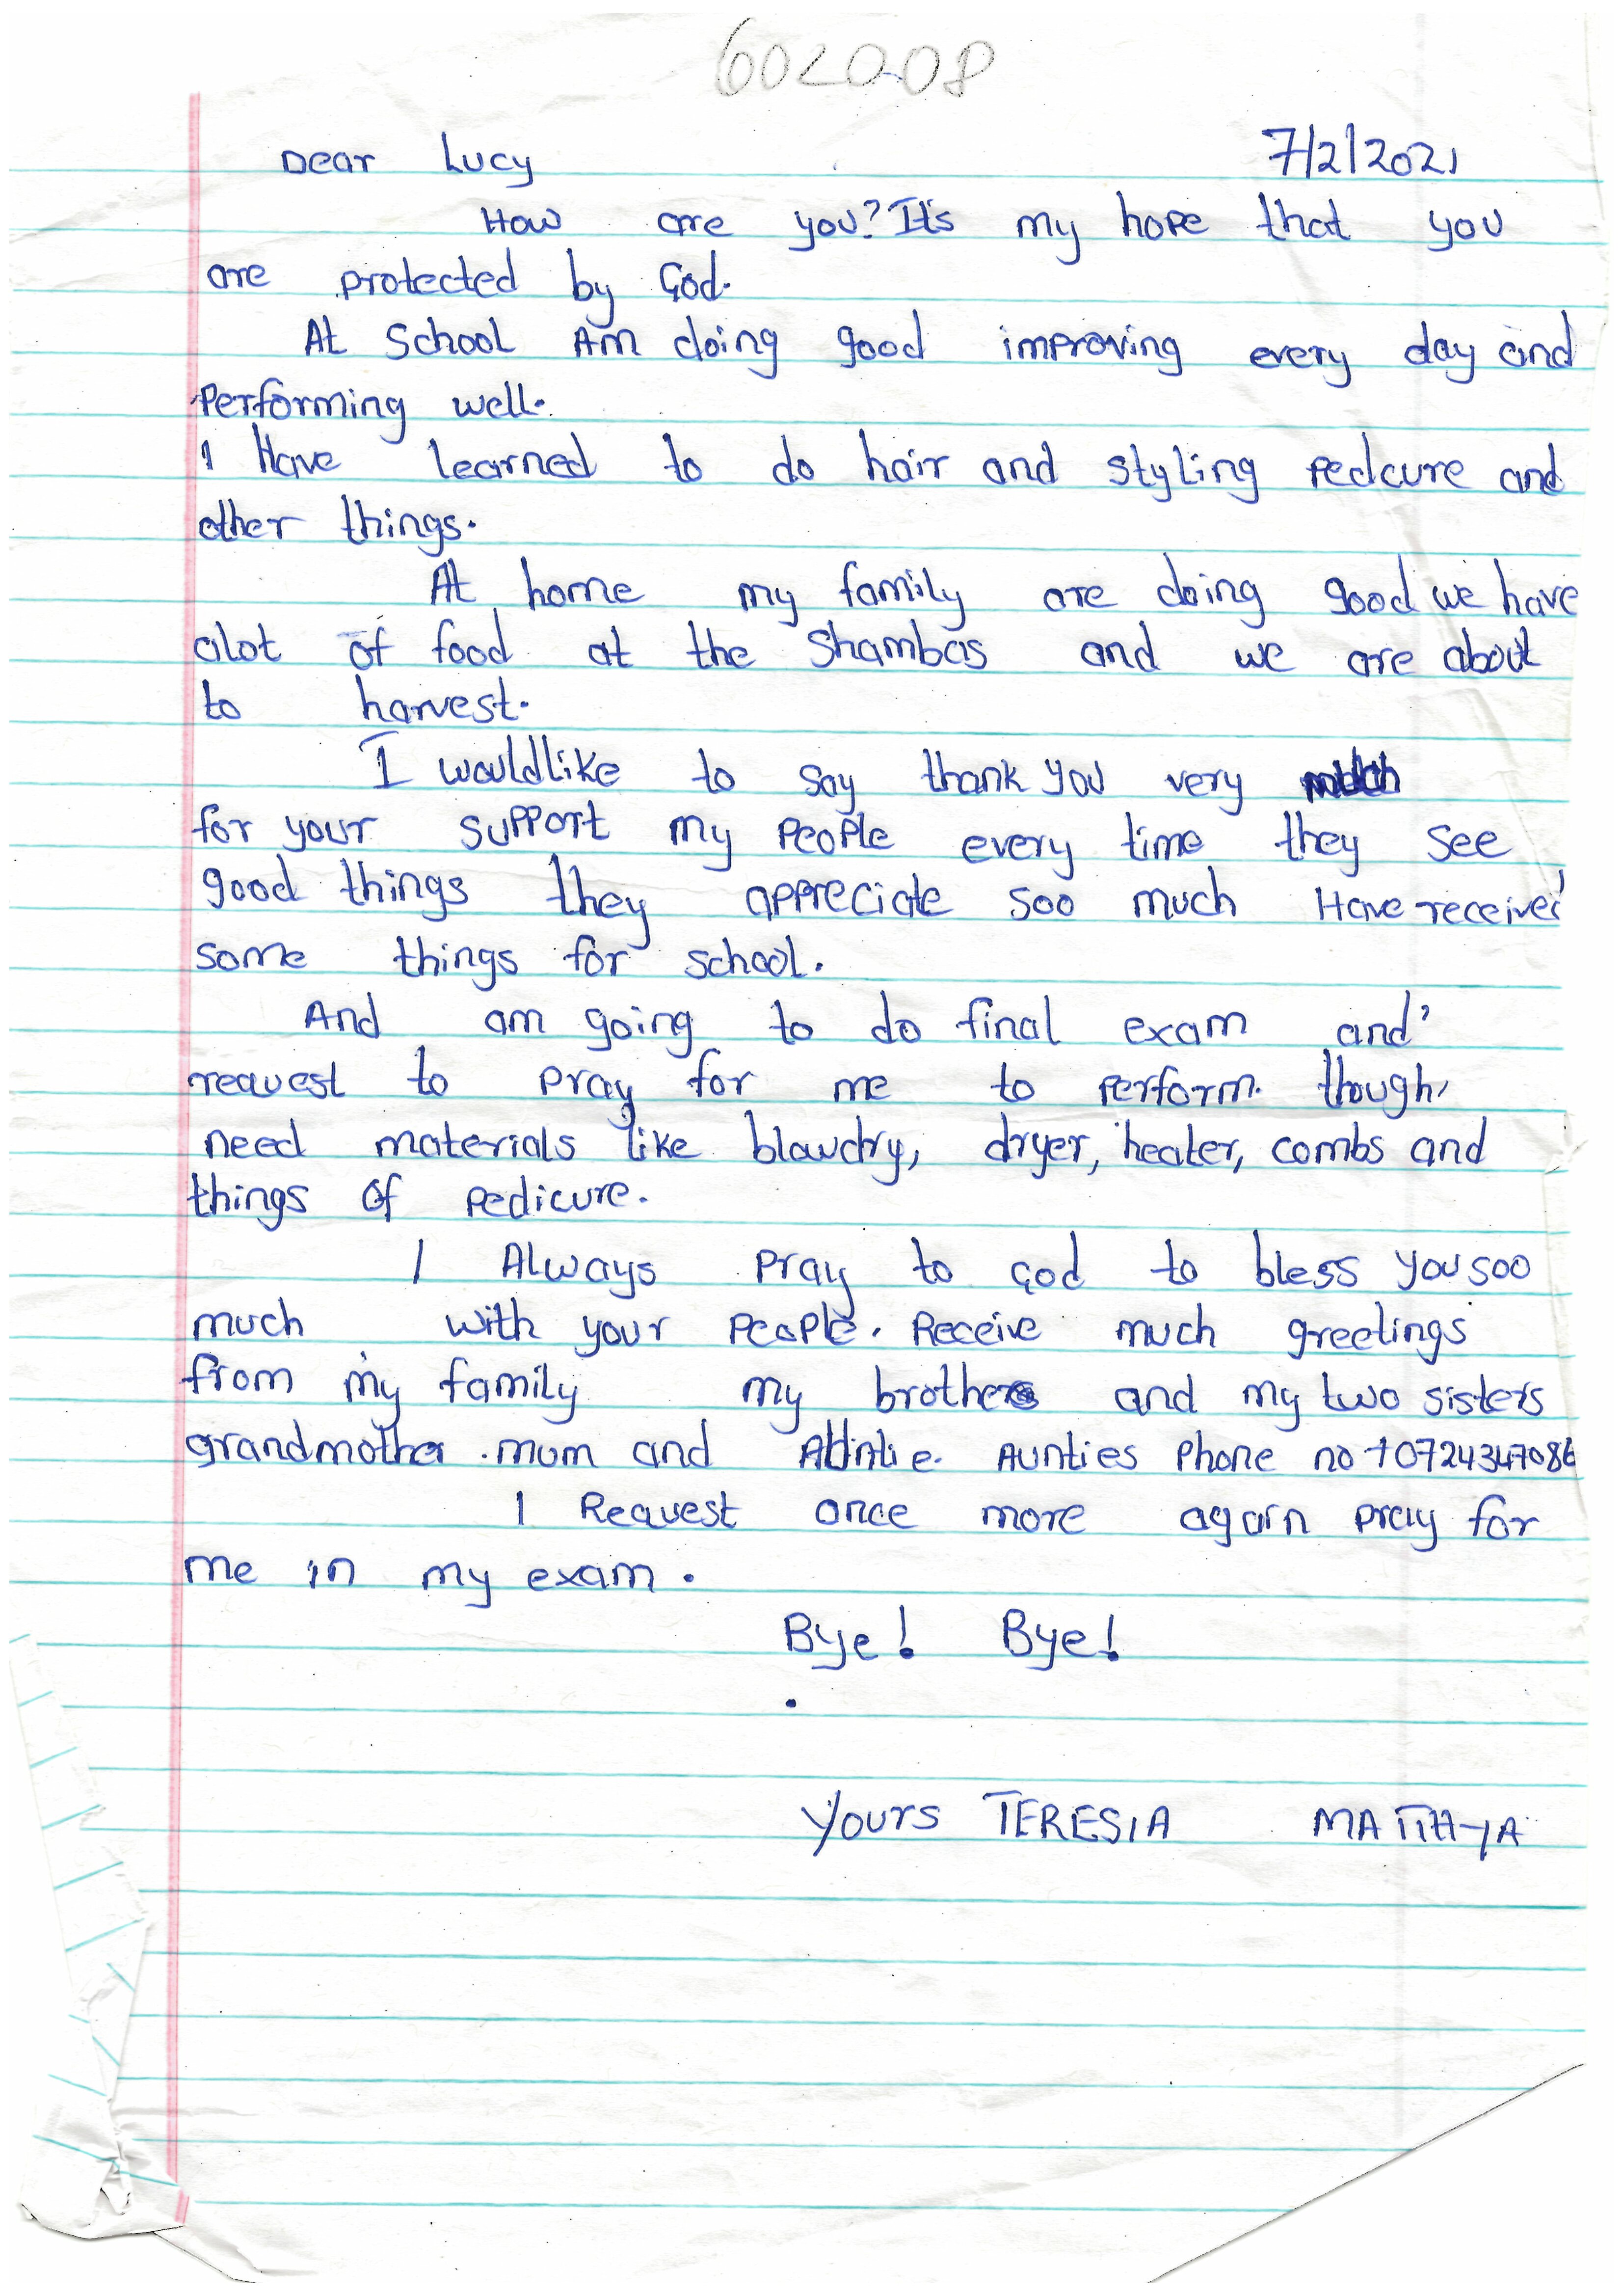 602008
Dear Lucy 7/2/2021
How are you? It's my hope that you
are protected by God.
At School Am doing good improving every day and
Performing well.
I Have learned to do hair and styling pedcure and
other things.
At home my family are doing good we have
alot of food at the Shambas and we are about
to harvest.
I wouldlike to say thank you very much
for your support my people every time they see
good things they appreciate soo much Have receive
some things for school.
And am going to do final exam and
request to pray for me to perform. though,
need materials like blowdry, dryer, heater, combs and
things of pedicure.
I Always pray to God to bless you soo
much with your people. Receive much greetings
from my family my brothers and my two sisters
grandmother. mum and Auntie. Aunties Phone no
I Request once more again pray for
me in my exam.
Bye! Bye!
Yours TERESIA